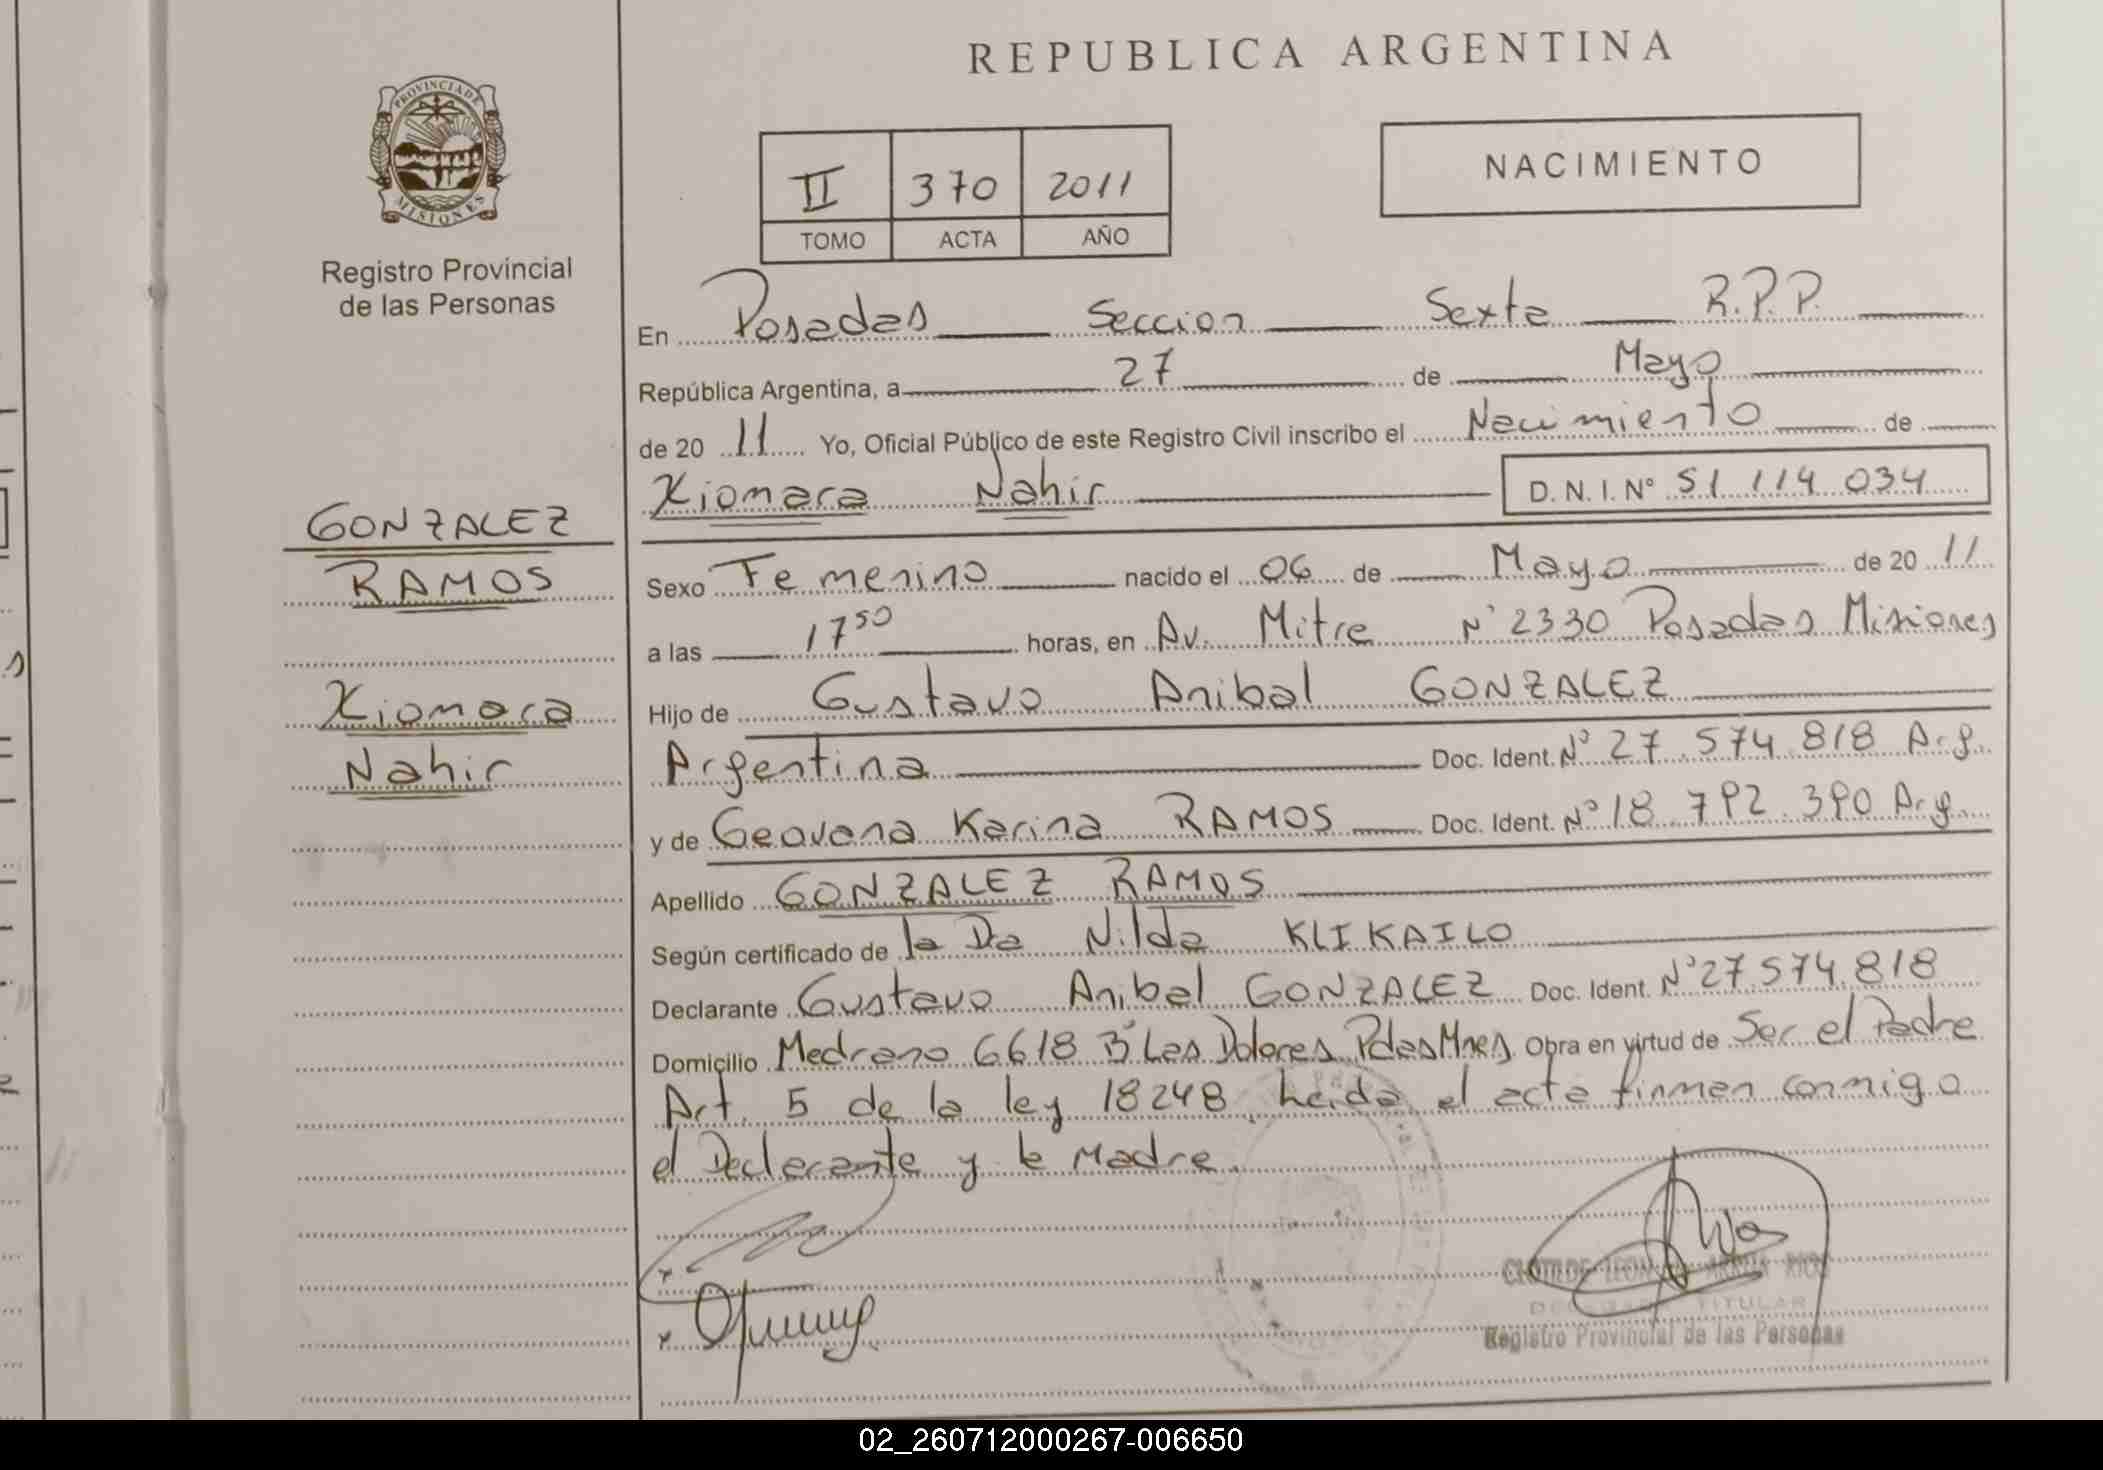 REPUBLICA ARGENTINA
PROVINCIA DE
MISIONES
Registro Provincial
de las Personas
II 370 2011
TOMO ACTA AÑO
NACIMIENTO
GONZALEZ
RAMOS
Xiomara
Nahir
En Posadas Seccion Sexta R.P.P.
República Argentina, a 27 de Mayo
de 20 11 Yo, Oficial Público de este Registro Civil inscribo el Nacimiento de
Xiomara Nahir D.N.I. Nº 51 114 034
Sexo Femenino nacido el 06 de Mayo de 20 11
a las 17 50 horas, en Av. Mitre Nº 2330 Posadas Misiones
Hijo de Gustavo Anibal GONZALEZ
Argentina Doc. Ident. Nº 27.574.818 Arg.
y de Geovana Karina RAMOS Doc. Ident. Nº 18.792.390 Arg.
Apellido GONZALEZ RAMOS
Según certificado de la Da Nilda KLIKAILO
Declarante Gustavo Anibal GONZALEZ Doc. Ident. Nº 27.574.818
Domicilio Medrano 6618 Bº Las Dolores Pdas Mnes. Obra en virtud de Ser el Padre
Art. 5 de la ley 18248. Leida el acta firman conmigo
el Declarante y la Madre.
TITULAR
Registro Provincial de las Personas
02_260712000267-006650